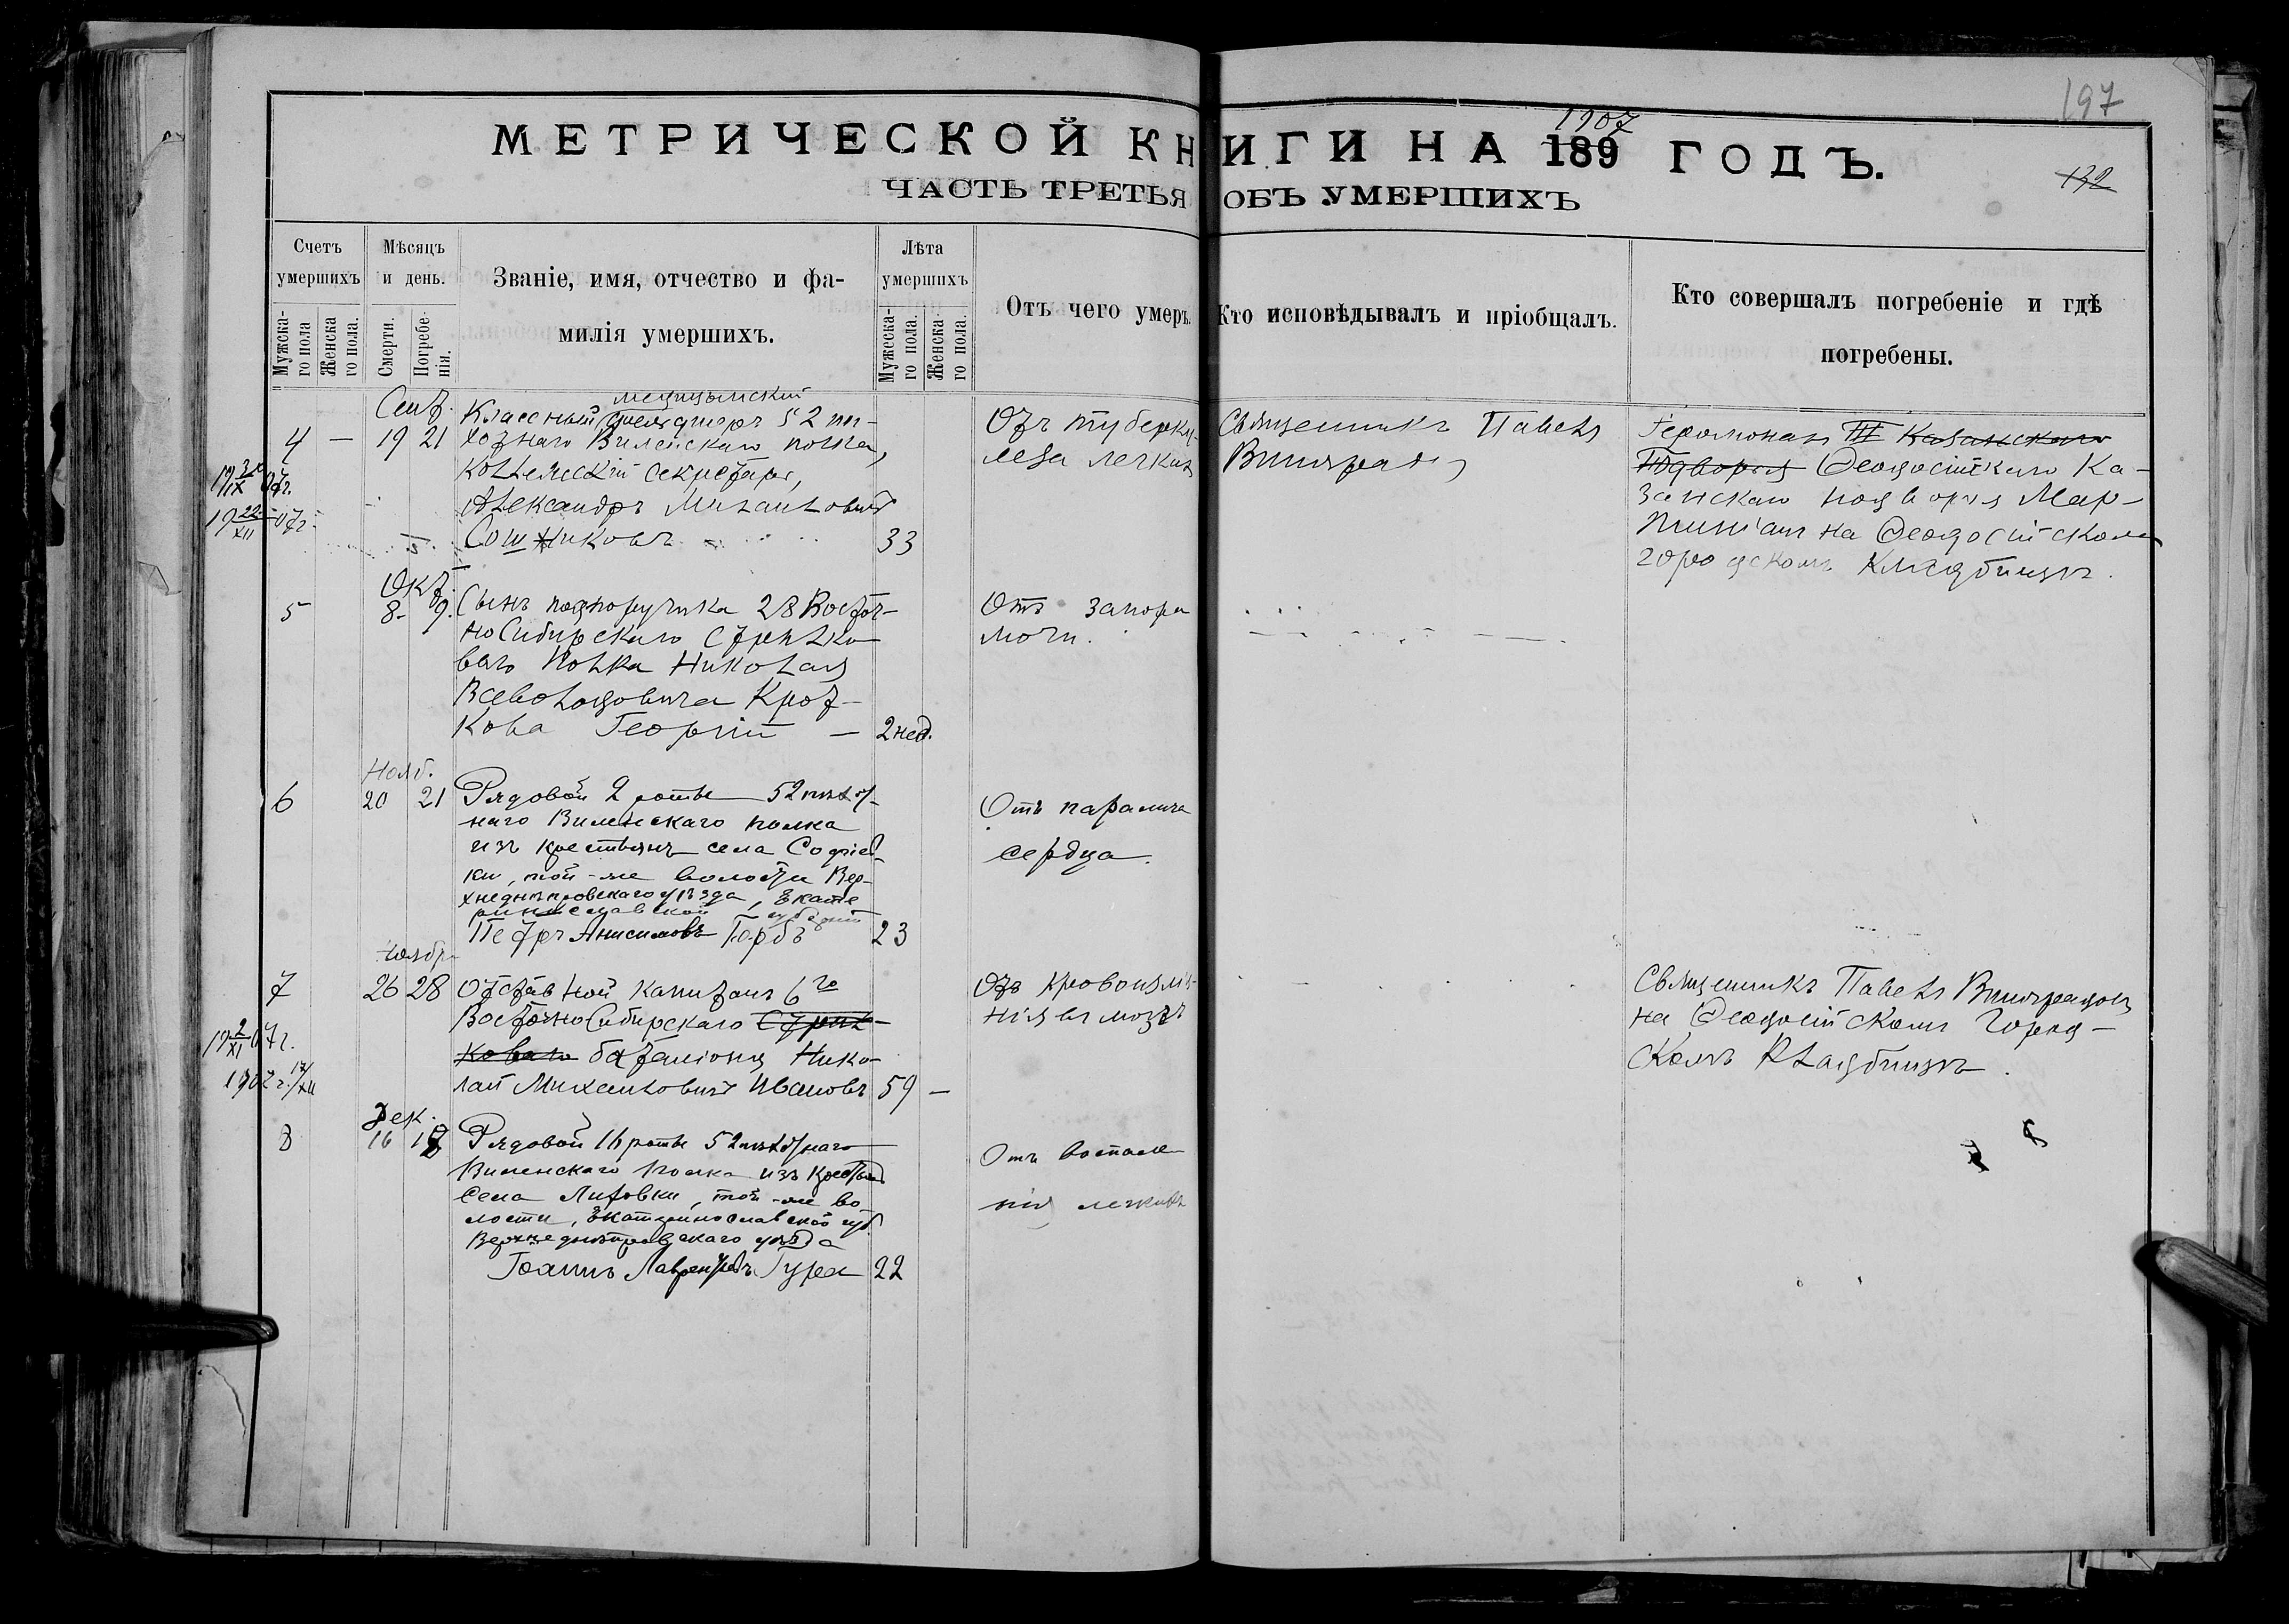 197
132
МЕТРИЧЕСКОЙ КНИГИ НА 189 ГОДЪ.
1907
ЧАСТЬ ТРЕТЬЯ ОБЪ УМЕРШИХЪ
Счетъ умершихъ
Мужска-го пола
Женска го пола.
Мѣсяцъ и день.
Смерти.
Погребе-нія.
Званіе, имя, отчество и фа-
милія умершихъ.
Лѣта умершихъ
Мужеска-го пола.
Женска го пола.
Отъ чего умеръ.
Кто исповѣдывалъ и пріобщалъ.
Кто совершалъ погребеніе и гдѣ
погребены.
Сент.
4 — 19 21
медицинскій
Классный фельдшеръ 52 пѣ-
хотнаго Виленскаго полка,
Коллежскій Секретарь,
Александръ Михаиловичъ
Сошниковъ 33
Отъ туберку-
леза легкихъ
Священникъ Павелъ
Виноградовъ
Іеромонахъ Казанскаго
Подворья Ѳеодосійскаго Ка-
занскаго подворья Мар-
тиніанъ на Ѳеодосійскомъ
городскомъ кладбищѣ.
Окт.
5 8 9.
Сынъ подпоручика 28 Восточ-
но Сибирскаго Стрѣлко-
ваго Полка Николая
Всеволодовича Крот-
кова Георгій — 2 нед.
Отъ запора
мочи.
Нояб.
6 20 21
Рядовой 2 роты 52 пѣхот-
наго Виленскаго полка
изъ крестьянъ села Софіев-
ки, той-же волости Вер-
хнеднѣпровскаго уѣзда, Екате
ринославской губерніи
Петръ Анисимовъ Горбъ 23
Отъ паралича
сердца.
Ноябр.
7 26 28
Отставной Капитанъ 6го
Восточно Сибирскаго Стрѣл-
коваго баталіона Нико-
лай Михаиловичъ Ивановъ 59 —
Отъ кровоизлія-
нія въ мозгъ
Священникъ Павелъ Виноградовъ
на Ѳеодосійскомъ Город-
скомъ Кладбищѣ.
Дек.
8 16 18
Рядовой 16 роты 52 пѣхотнаго
Виленскаго полка изъ крестьянъ
села Лиховки, той-же во-
лости, Екатеринославской губ.
Верхнеднѣпровскаго уѣзда
Іоаннъ Лаврентьевъ Гура 22
Отъ воспале-
нія легкихъ